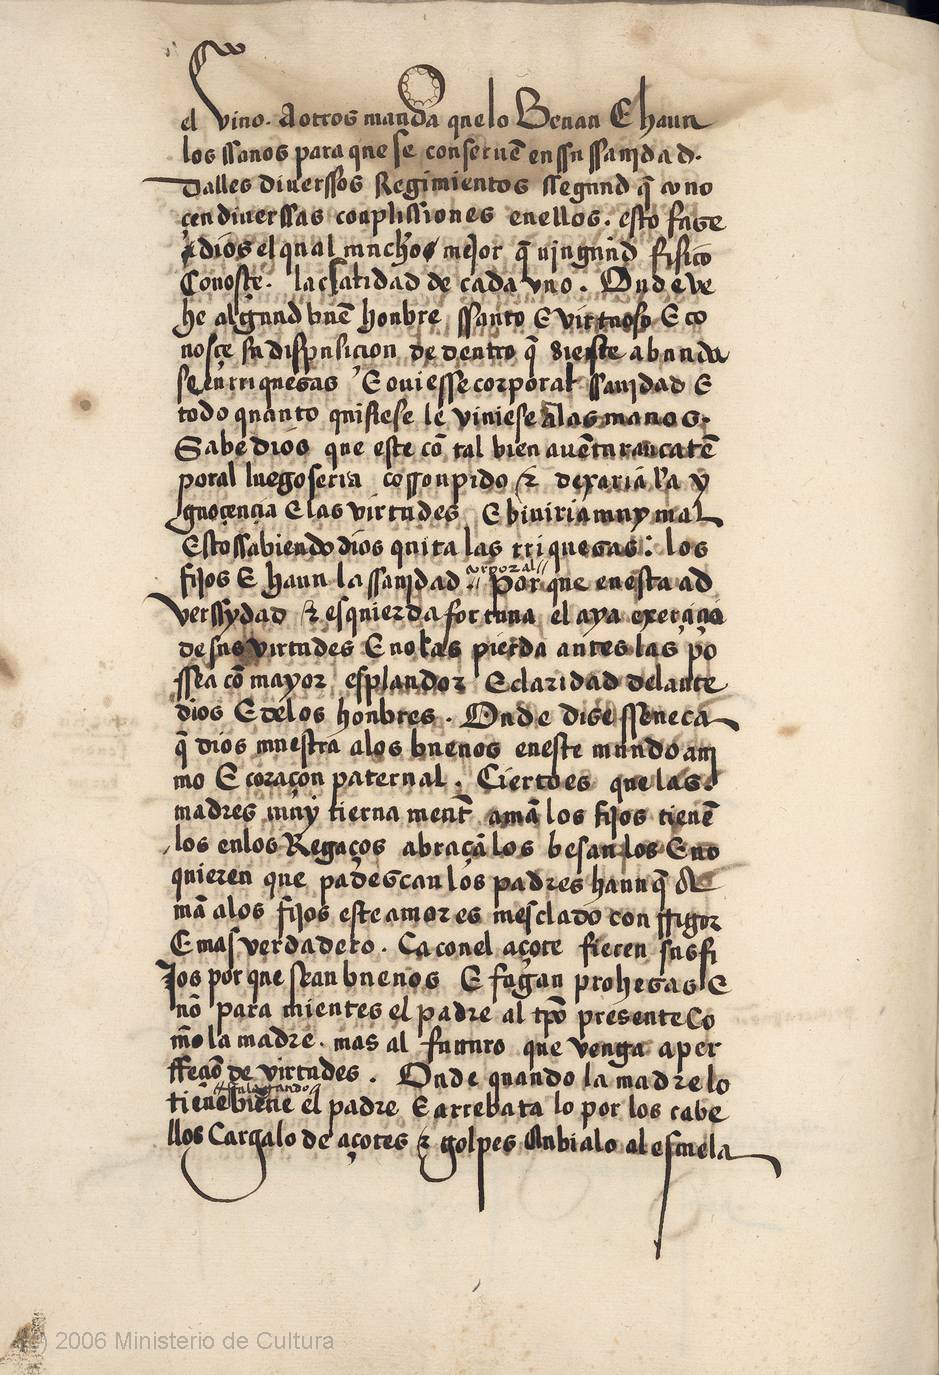 el vino. A otros manda que lo Beuan E haun
los ssanos para que se conseruẽ en ssu ssanjdad.
Dalles diuerssos Regimientos ssegund q̃ cono
çen diuerssas conplissiones enellos. esto faze
dios el qual mucho mejor q̃ njngund fisico
Conosçe. la calidad de cada vno. Onde ve
he algund buẽ honbre ssanto E virtuoso E co
nosçe su dispusiçion de dentro q̃ sieste abunda
se en rriquesas E ouiesse corporal ssanjdad E
todo quanto quisiese le viniese alas manos.
Sabe dios que este cõ tal bien auẽturança tẽ
poral luego seria corronpido & dexaria la y
gnoçençia E las virtudes E biuiria muy mal
Esto ssabiendo dios quita las rriquesas: los
fijos E haun la ssanjdad corporal. Por que enesta ad
verssydad & esquierda fortuna el aya exerçiçio
de sus virtudes E no las pierda antes las po
ssea cõ mayor esplandor E claridad delante
dios E delos honbres. Onde dise sseneca
q̃ dios muestra alos buenos eneste mundo anj
mo E coraçon paternal. Cierto es que las
madres muy tierna ment̃ amã los fijos tienẽ
los enlos Regaços abraçãlos besanlos E no
quieren que padescan los padres haun q̃ A
mã alos fijos este amor es mesclado con rrigor
E mas verdadero. Ca conel açote fieren sus fi
Jos por que sean buenos E fagan prohesas E
nõ para mientes el padre al tpõ presente Co
mõ la madre. mas al futuro que venga a per
ffeçiõ de virtudes. Onde quando la madre lo
tiene falagando viene el padre E arrebata lo por los cabe
llos Cargalo de açotes & golpes Enbialo al escuela
(c) 2006 Ministerio de Cultura